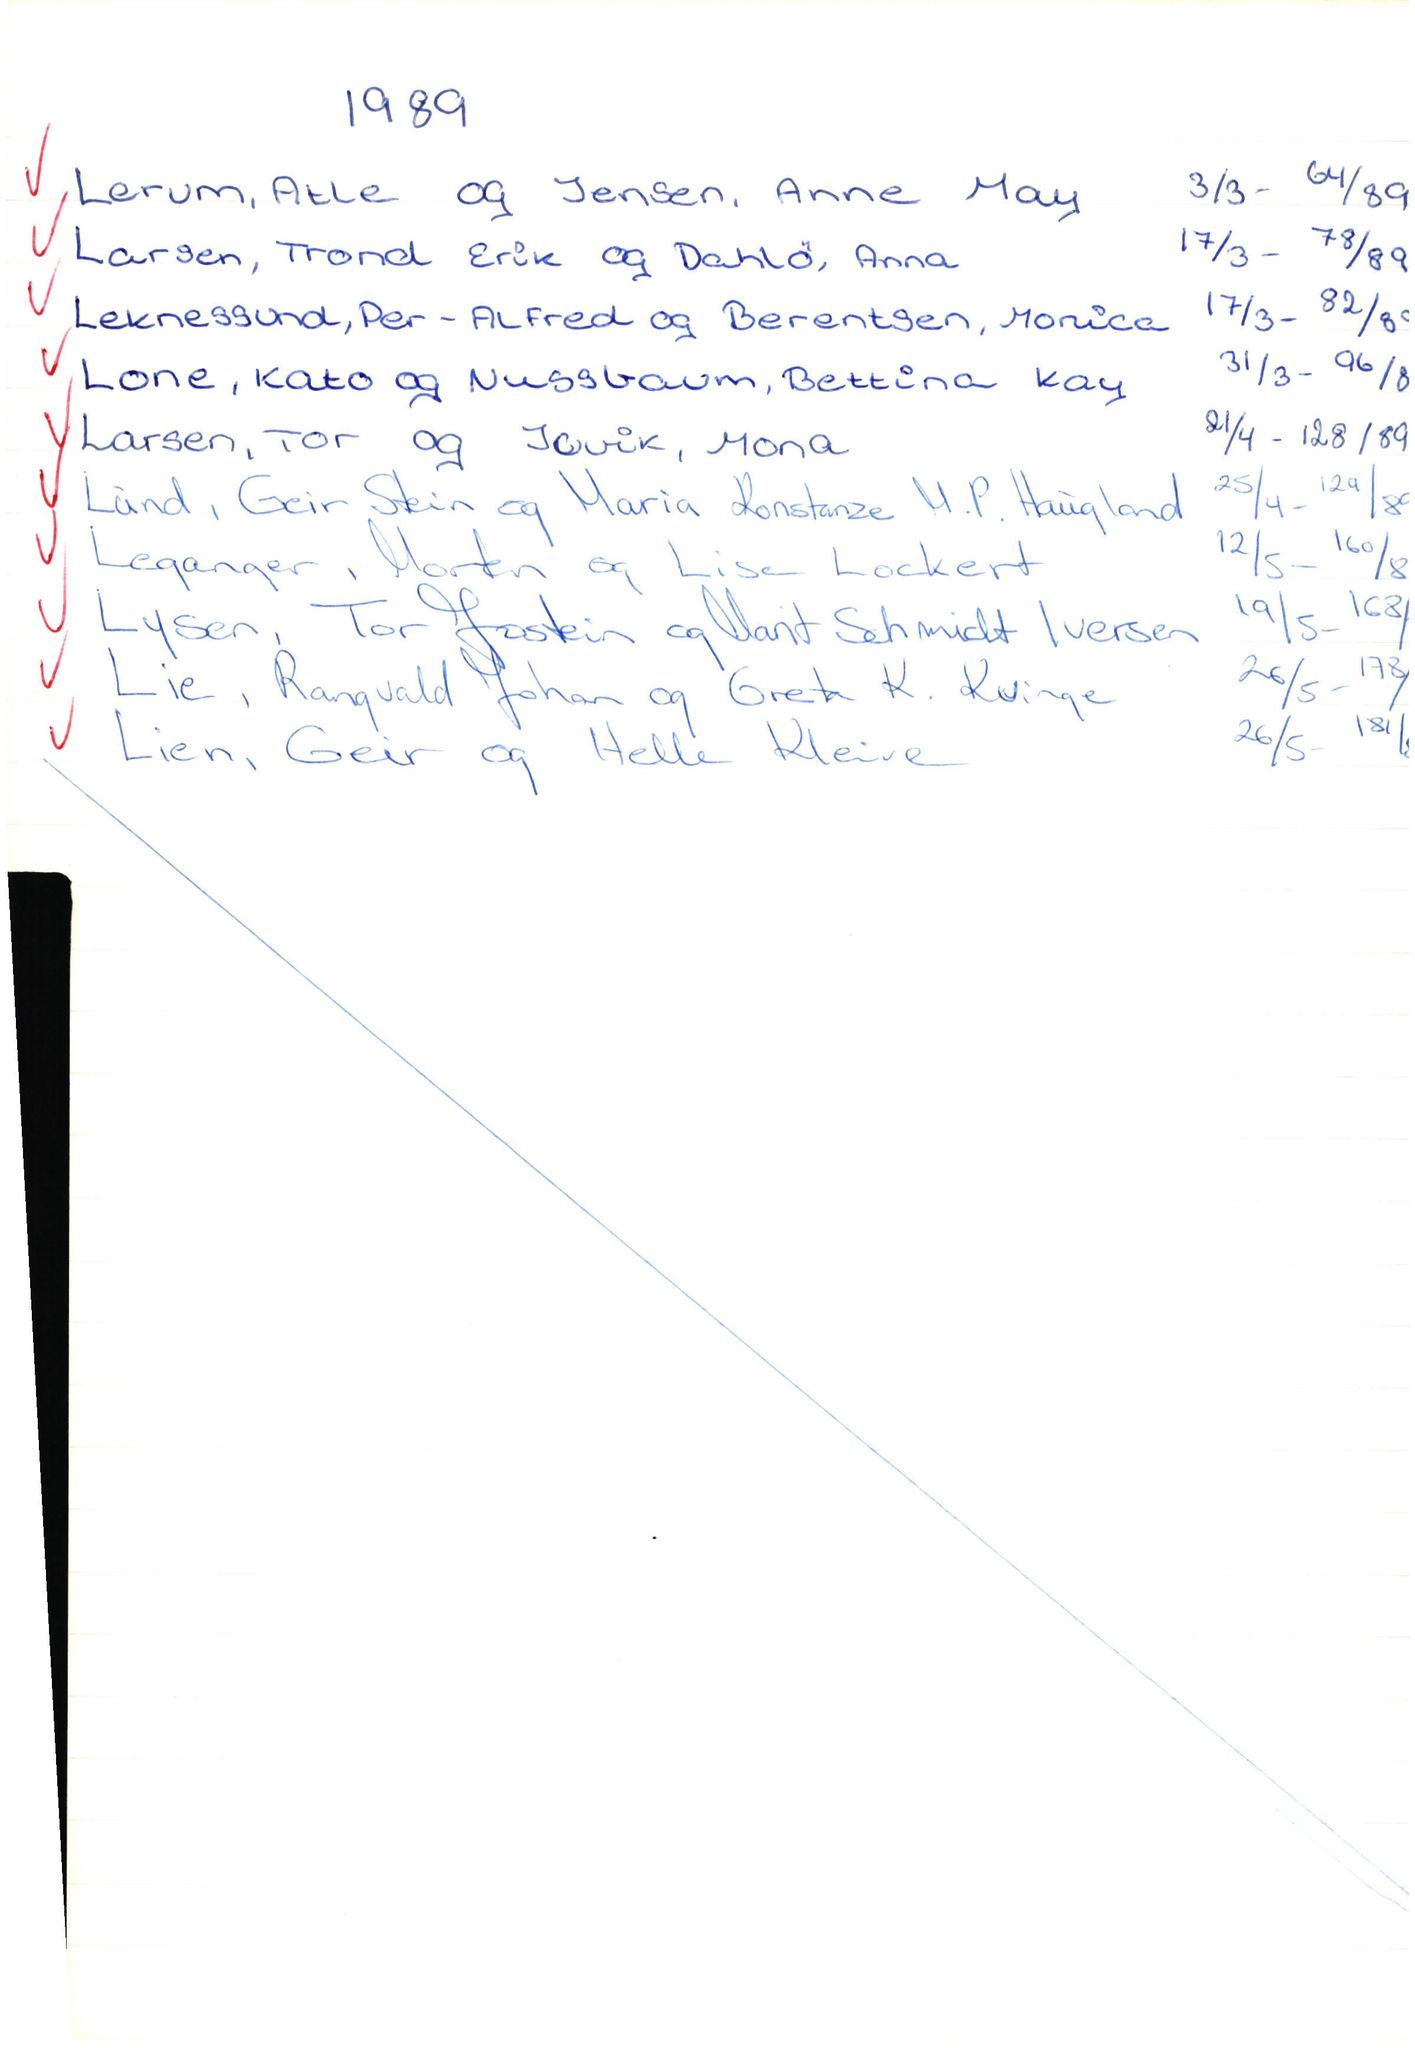 1989
Lerum, Atle og Jensen, Anne May 3/3 - 64/89
Larsen, Trond Erik og Dahlö, Anna 17/3 - 78/89
Leknessund, Per-Alfred og Berentsen, Monica 17/3 - 82/89
Lone, Kato og Nussbaum, Bettina Kay 31/3 - 96/8
Larsen, Tor og Jovik, Mona 21/4 - 128/89
Lund, Geir Stein og Maria Konstanze M.P. Haugland 25/4 - 129/89
Leganger, Morten og Lise Lockert 12/5 - 160/8
Lysen, Tor Jostein og Marit Schmidt Iversen 19/5 - 168/
Lie, Rangvald Johan og Greta K. Kvinge 26/5 - 178/
Lien, Geir og Helle Kleive 26/5 - 181/